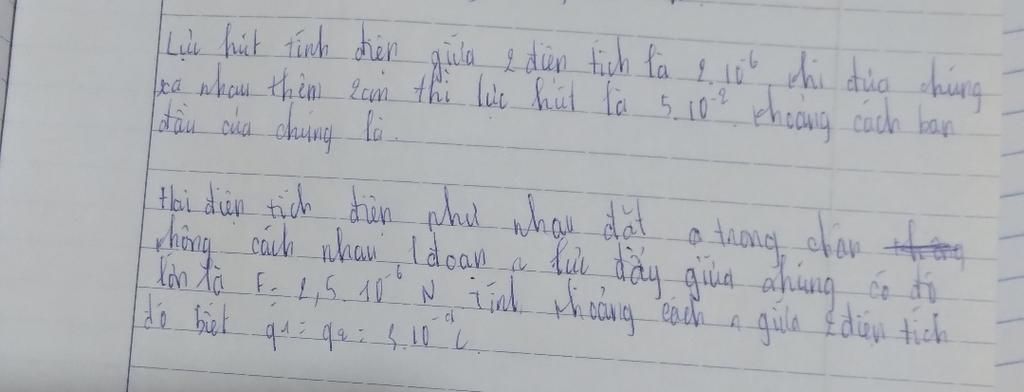 Lực hút tĩnh điện giữa 2 điện tích là 2.10⁻⁶ khi đưa chúng
xa nhau thêm 2cm thì lực hút là 5.10⁻² khoảng cách ban
đầu của chúng là.
Hai điện tích điện như nhau đặt a trong chân
không cách nhau 1 đoạn r lực đẩy giữa chúng có độ
lớn là F = 2,5 10⁻⁶ N tính khoảng cách r giữa 2 điện tích
đó biết q1 = q2 = 3.10⁻⁹ C.